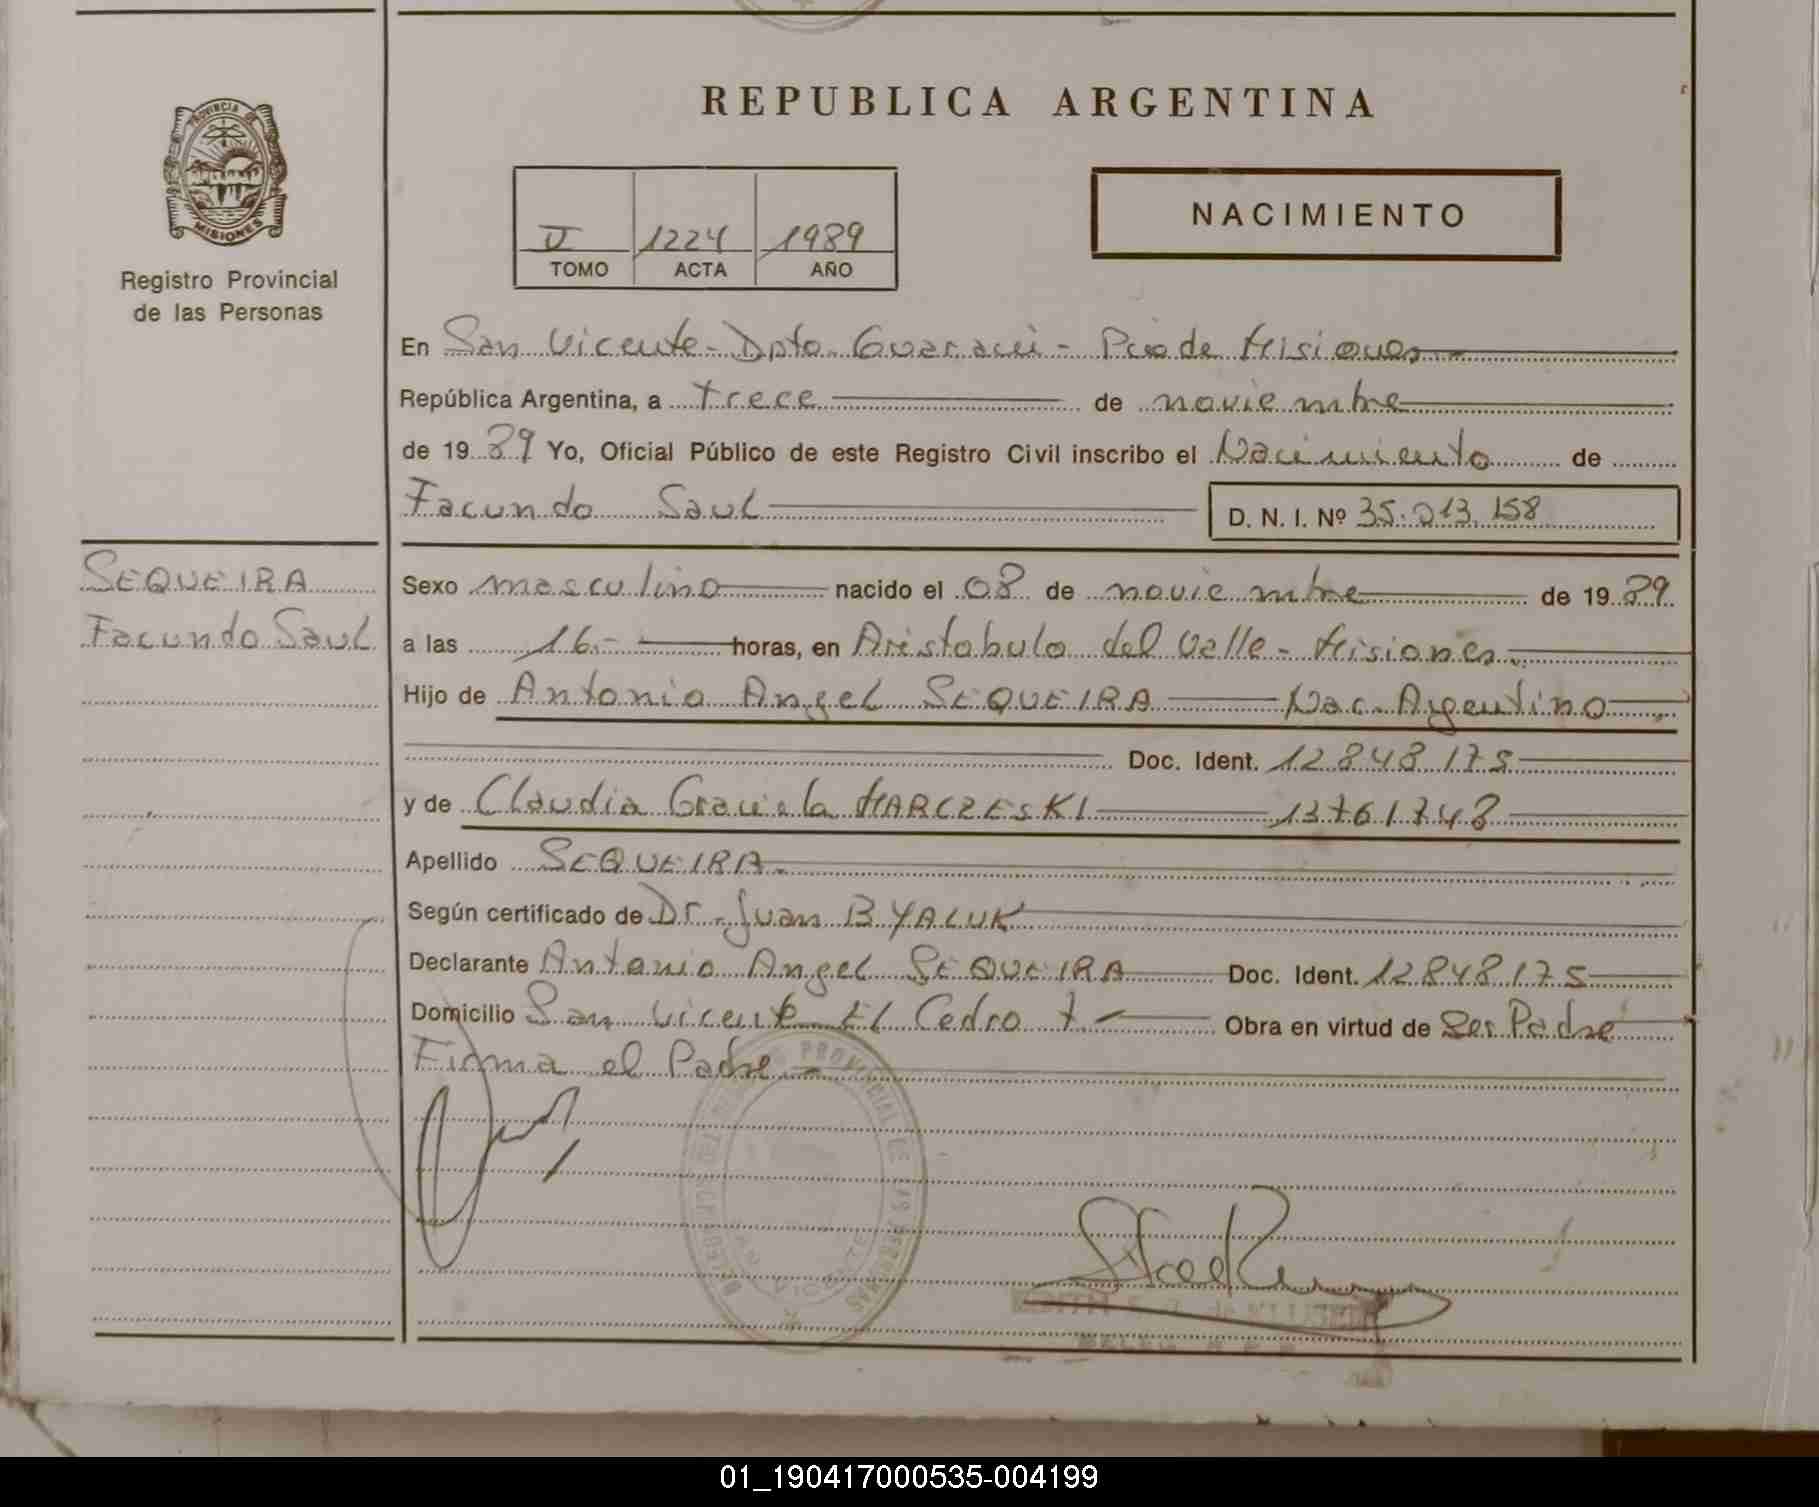 REPUBLICA ARGENTINA
PROVINCIA DE
MISIONES
Registro Provincial
de las Personas
V 1224 1989
TOMO ACTA AÑO
NACIMIENTO
En San Vicente - Dpto. Guaraní - Pcia de Misiones
República Argentina, a trece de noviembre
de 1989 Yo, Oficial Público de este Registro Civil inscribo el Nacimiento de
Facundo Saul
D. N. I. Nº 35.013.158
SEQUEIRA
Facundo Saul
Sexo masculino nacido el 08 de noviembre de 1989
a las 16.- horas, en Aristobulo del Valle - Misiones.
Hijo de Antonio Angel SEQUEIRA Nac. Argentino
Doc. Ident. 12848175
y de Claudia Graciela MARCZESKI 13761748
Apellido SEQUEIRA.
Según certificado de Dr. Juan BYALUK
Declarante Antonio Angel SEQUEIRA Doc. Ident. 12848175
Domicilio San Vicente El Cedro Obra en virtud de Ser Padre
Firma el Padre
PROVINCIAL DE LAS PERSONAS
SAN VICENTE
01_190417000535-004199